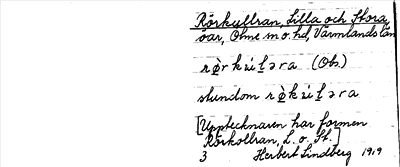 Rörkullran, Lilla och Stora,
öar, Ölme sn o. hd, Värmlands län
(Ob.)
stundom
[Upptecknaren har formen
Rörkollran, L. o. St.]
3 Herbert Lindberg 1919